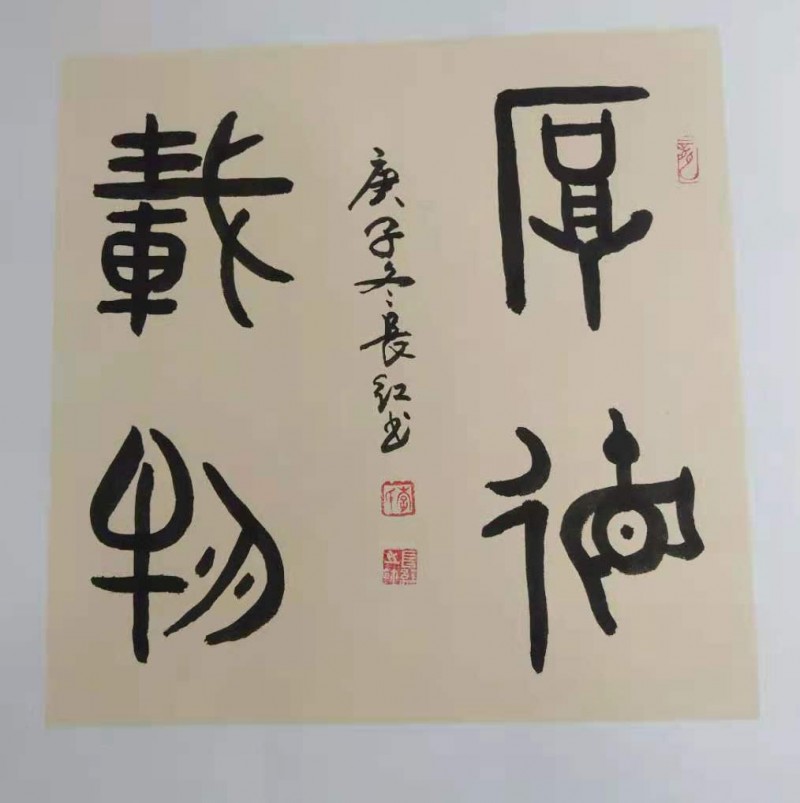 厚德
載物
庚子冬長红书